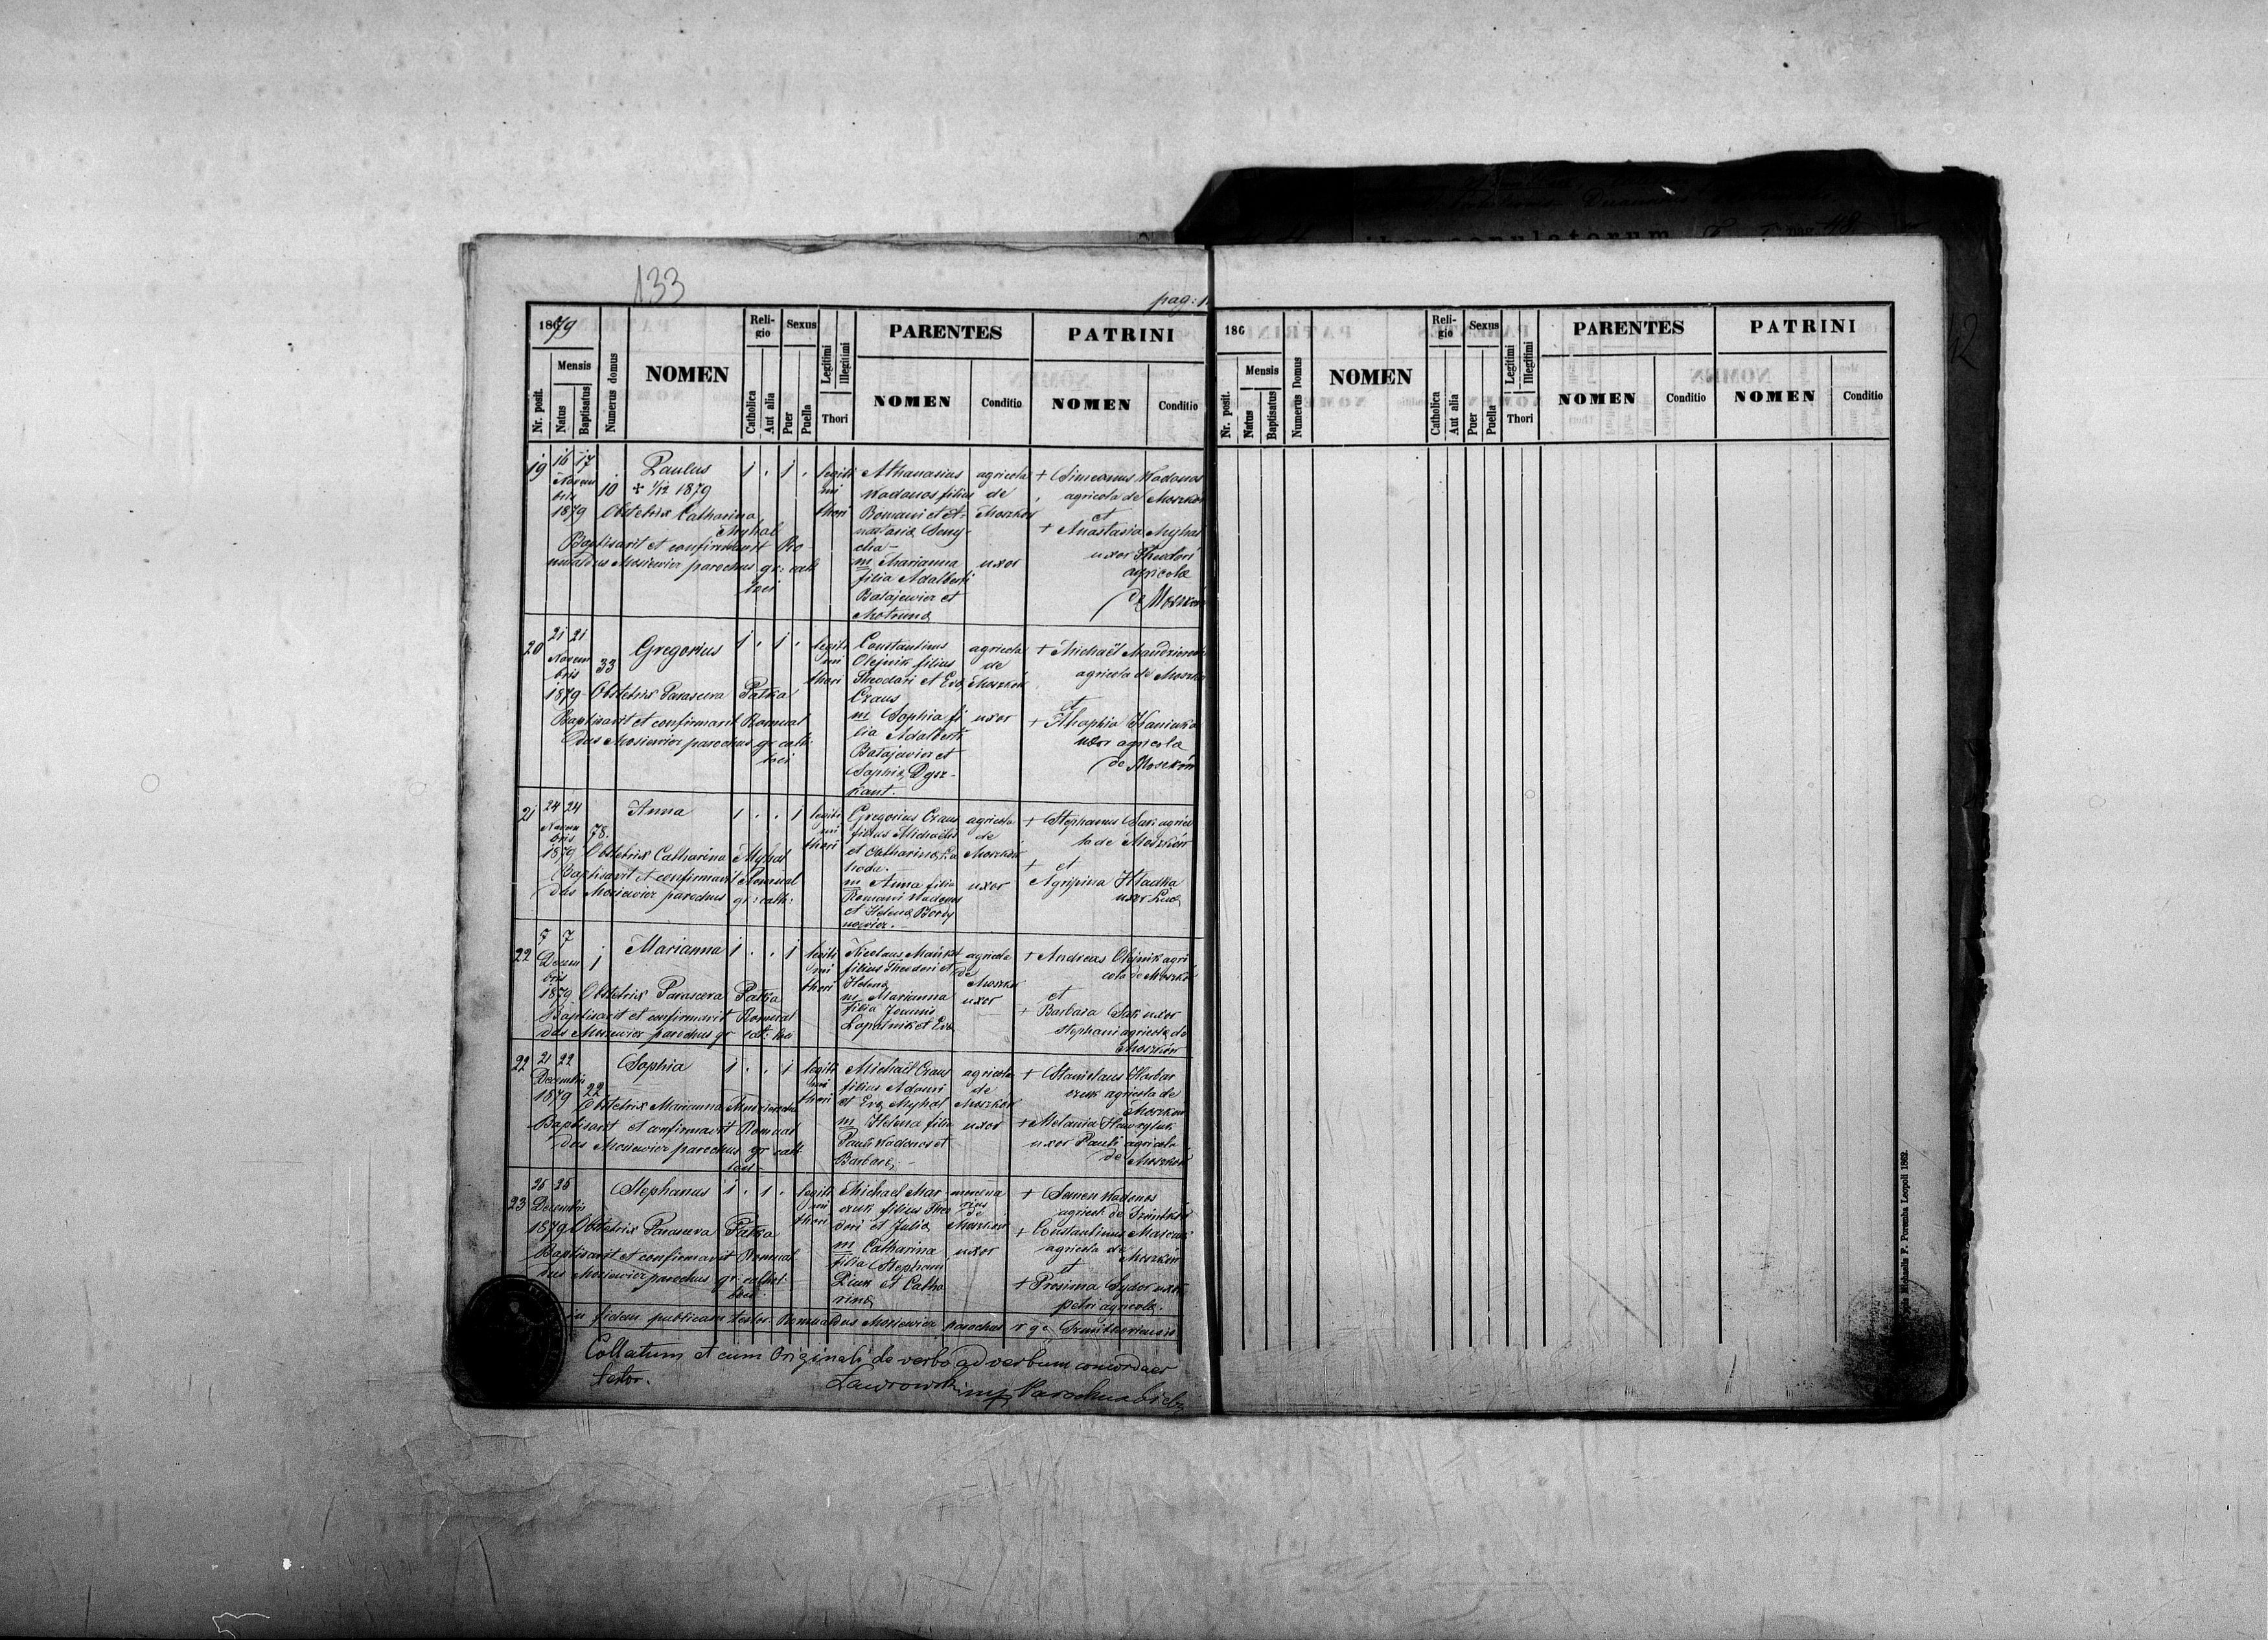 133
pag: 1
1879
Nr. posit.
Mensis
Natus
Baptisatus
Numerus domus
NOMEN
Religio
Catholica
Aut alia
Sexus
Puer
Puella
Legitimi
Illegitimi
Thori
PARENTES
NOMEN
Conditio
PATRINI
NOMEN
Conditio
19
16 17
Novem
bris
1879
10
Paulus
+ 1/12 1879
Obstetrix Catharina
Myhal
Baptisavit et confirmavit Ro-
mualdus Mosiewicz parochus gr: cath
loci
1 . 1 .
legiti
mi
thori
Athanasius
Wadonos filius
Romani et A-
nastasia Seny-
cha
m Marianna
filia Adalberti
Batajewicz et
Motruna
agricola
de
Moszków
uxor
+ Simeonus Wadonos
agricola de Moszków
et
+ Anastasia Myhal
uxor Theodori
agricola
de Moszków
20
21 21
Novem
bris
1879
33
Gregorius
Obstetrix Parasceva Patka
Baptisavit et confirmavit Romual
dus Mosiewicz parochus gr cath:
loci
1 . 1 .
legiti
mi
thori
Constantinus
Olejnik filius
Theodori et Eva
Czaus
m Sophia fi
lia Adalberti
Batajewicz et
Sophia Dysz-
kant.
agricola
de
Moszków
uxor
+ Michaël
agricola de Moszków
et
+ Haniuka
uxor agricola
de Moszków
21
24 24
Novem
bris
1879
78.
Anna
Obstetrix Catharina Myhal
Baptisavit et confirmavit Romual
dus Mosiewicz parochus gr: cath:
1 . . 1
legiti
mi
thori
Gregorius Czaus
filius Michaelis
et Catharina
m Anna filia
Romani Wadonos
et Helena
agricola
de
Moszków
uxor
+ Stephanus Sak agrico
la de Moszków
+ et
Agripina Hladka
uxor Luca
22
7 7
Decem
bris
1879
1
Marianna
Obstetrix Parasceva Patka
Baptisavit et confirmavit Romual
dus Mosiewicz parochus gr cath: loci
1 . . 1
legiti
mi
thori
Nicolaus
filius Theodori et
Helena
m Marianna
filia Joannis
Lopatnik et Eva
agricola
de
Moszków
uxor
+ Andreas Olejnik agri
cola de Moszków
et
+ Barbara Sak uxor
Stephani agricola de
Moszków
22
21 22
Decembris
1879
22
Sophia
Obstetrix Marianna
Baptisavit et confirmavit Romual
dus Mosiewicz parochus gr cath
loci
1 . . 1
legiti
mi
thori
Michaël Czaus
filius
et Eva Myhal
m Helena filia
Pauli Wadonos et
Barbara
agricola
de
Moszków
uxor
+ Stanislaus Harbar
czuk agricola de
Moszków
+ Melania Hawryluk
uxor Pauli agricola
de Moszków
23
25 25
Decembris
1879
Stephanus
Obstetrix Parasceva Patka
Baptisavit et confirmavit Romual
dus Mosiewicz parochus gr cathol:
loci
1 . 1 .
legiti
mi
thori
Michael Mar
czuk filius Theo
dori et Julia
m Catharina
filia Stephani
et Catha
rina
mercena
rius
de
Moszków
uxor
+ Semen Wadonos
agricola de
+ Constantinus Marczuk
agricola de
Moszków
et
+ Prosima Sydor uxor
petri agricola.
in fidem publicam testor Romualdus Mosiewicz parochus r gc
Collatum et cum Originali de verbo ad verbum concordare
testor.
Lawrowski mp Parochus
186
Nr. posit.
Mensis
Natus
Baptisatus
Numerus Domus
NOMEN
Religio
Catholica
Aut alia
Sexus
Puer
Puella
Legitimi
Illegitimi
Thori
PARENTES
NOMEN
Conditio
PATRINI
NOMEN
Conditio
12
Michaelis F. Poremba Leopoli 1862.